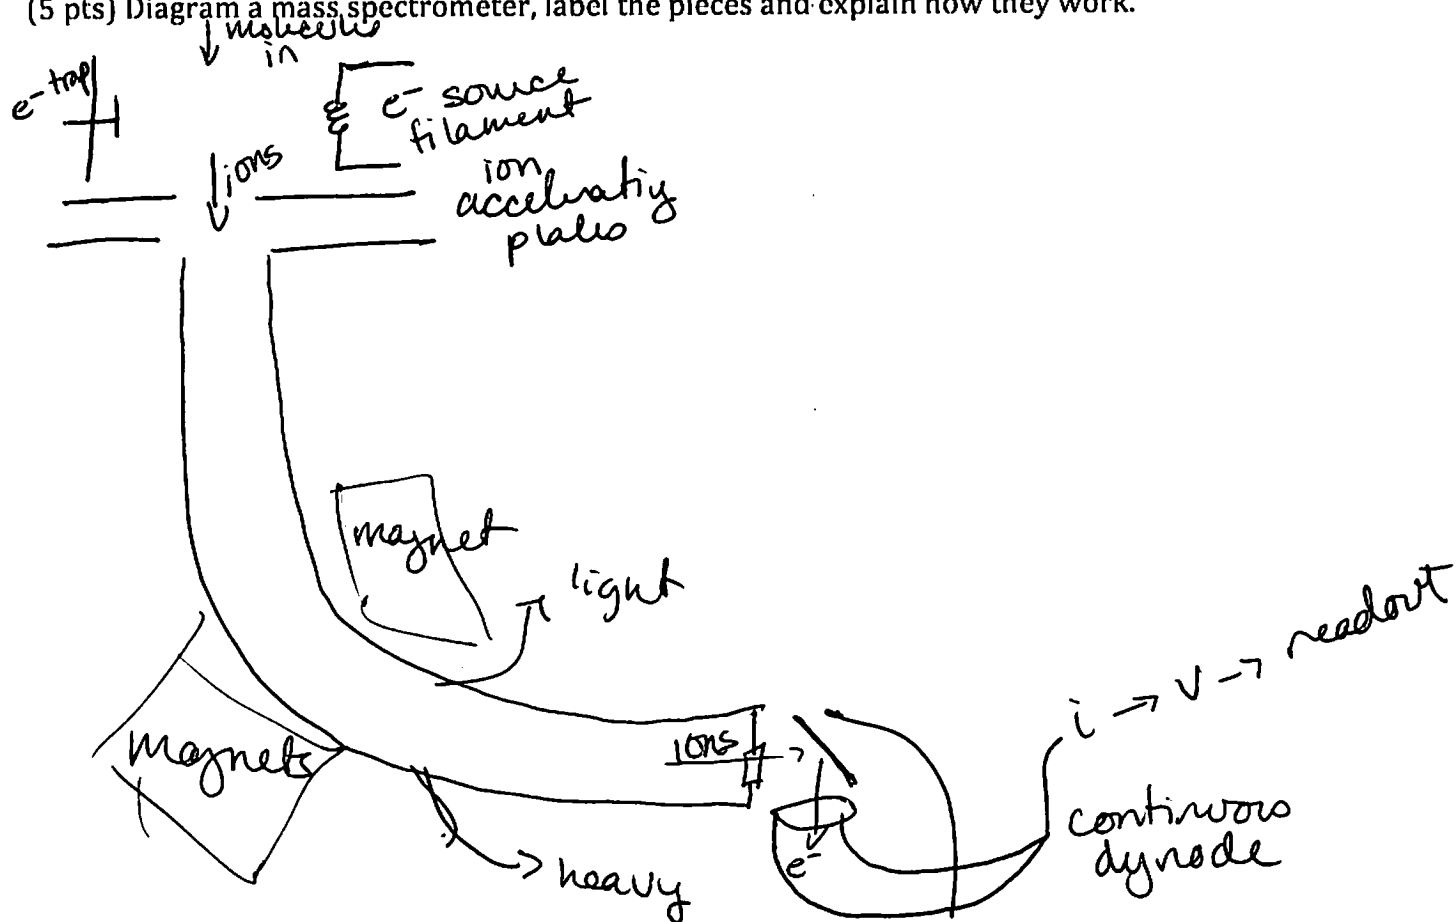 (5 pts) Diagram a mass spectrometer, label the pieces and explain how they work.
molecules
in
e- trap
e- source
filament
ions
ion
accelerating
plates
magnet
light
magnets
ions
heavy
e-
i → V → readout
continuous
dynode